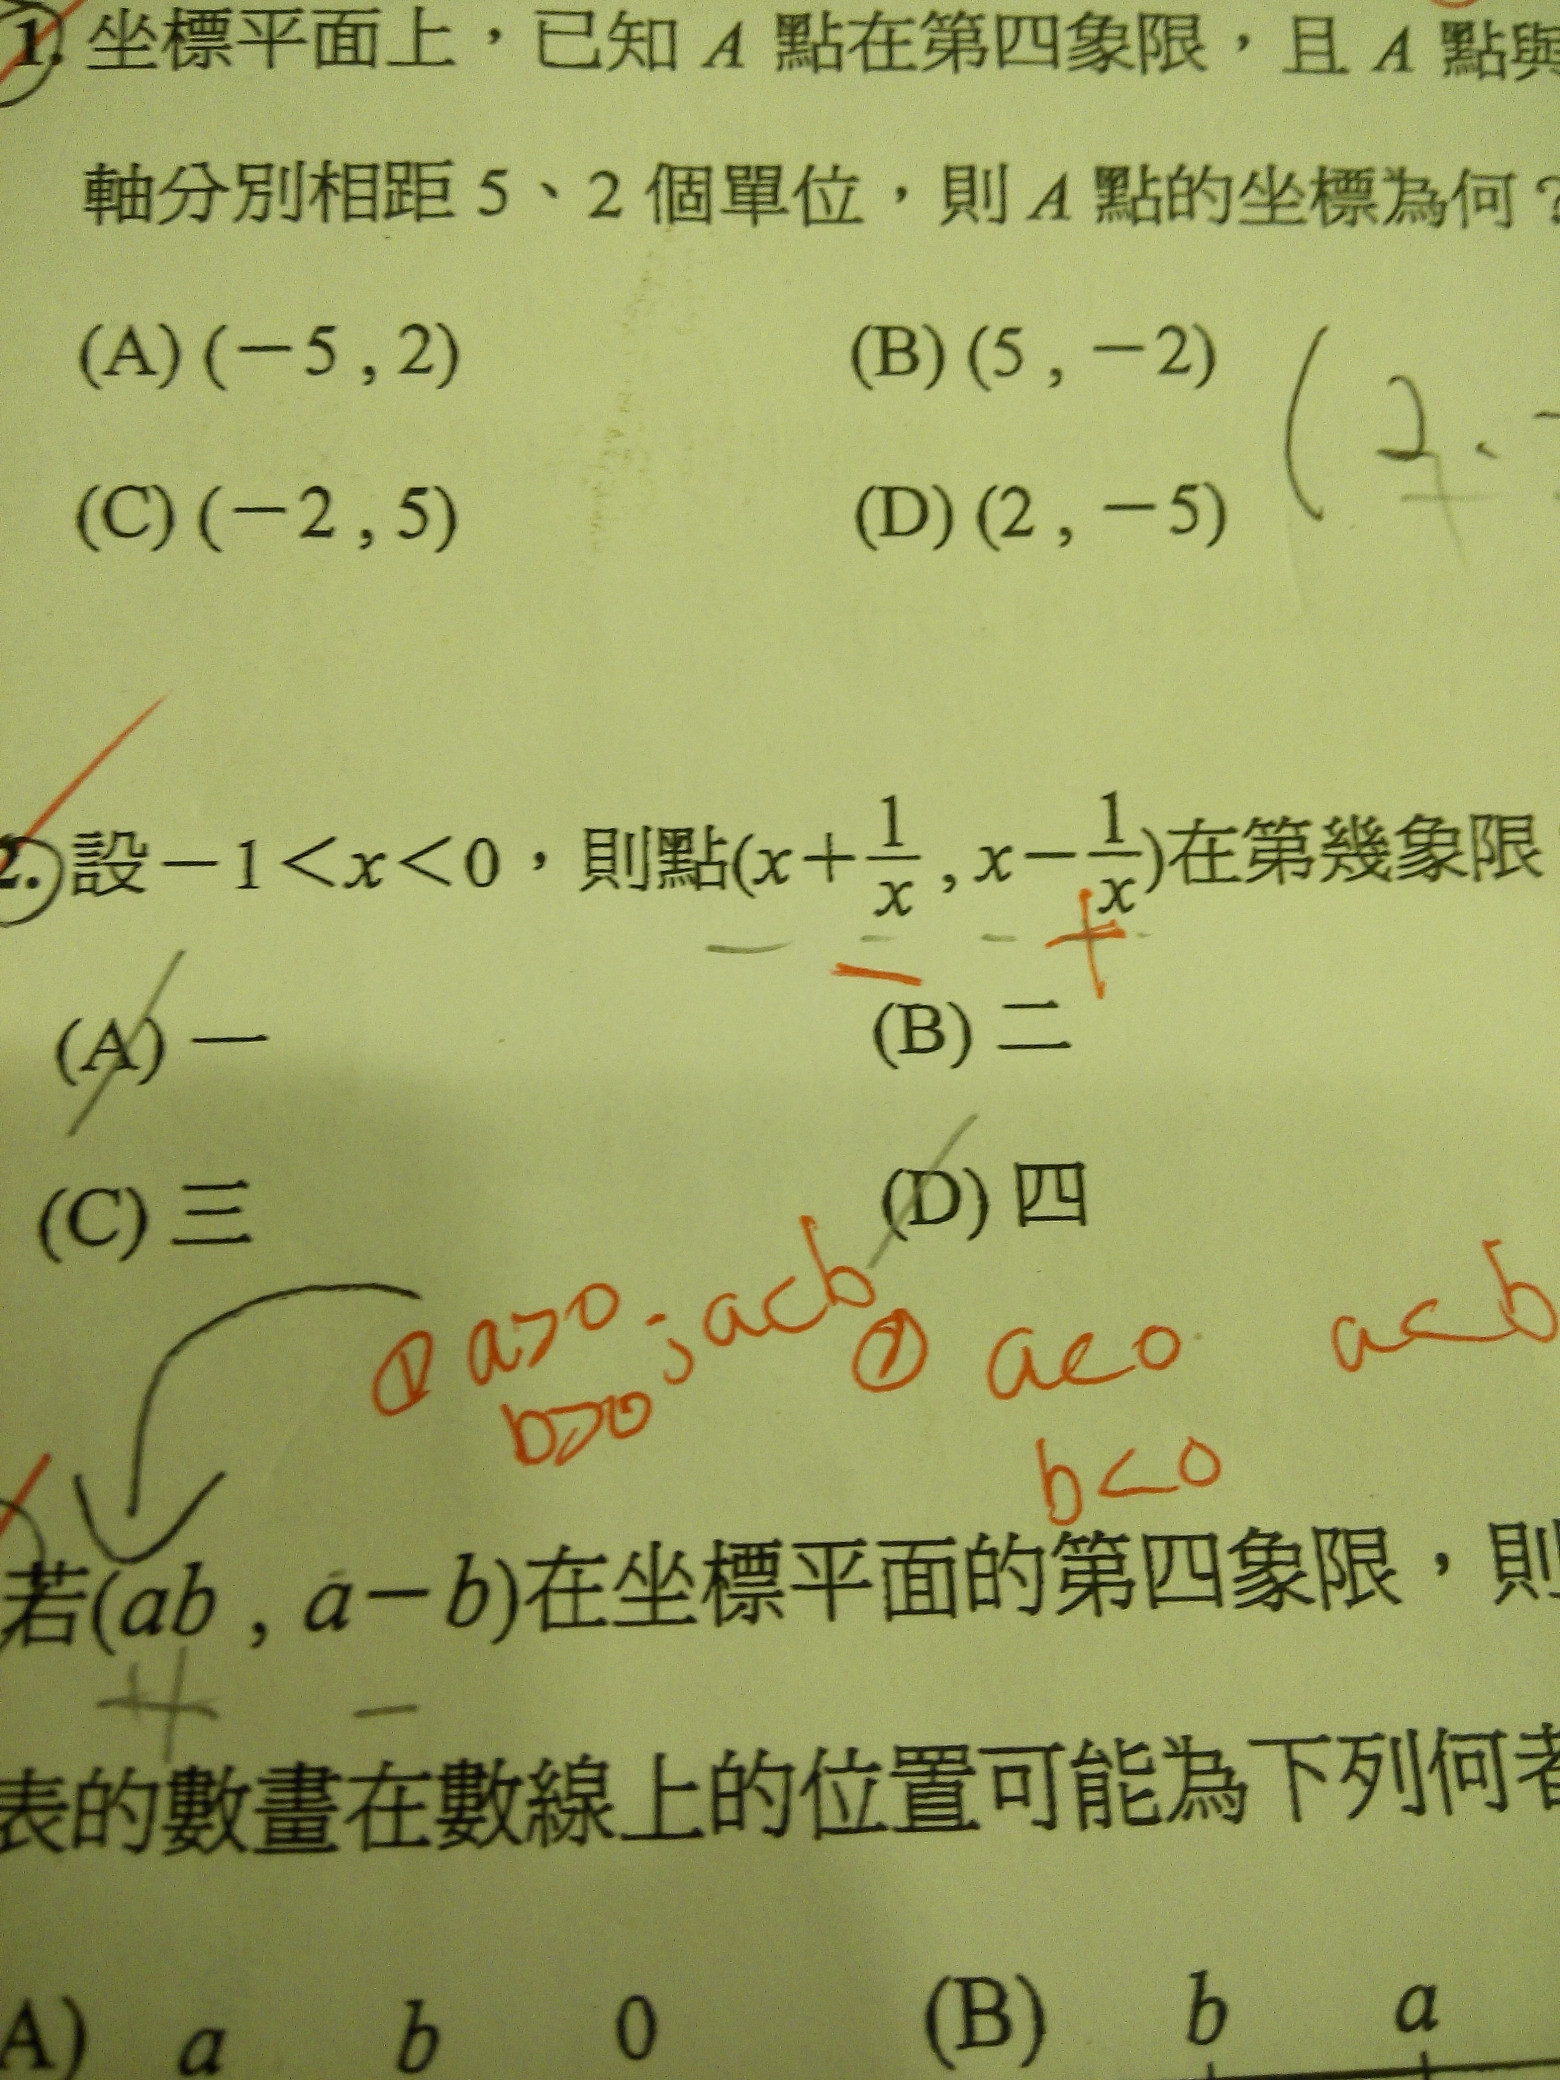 1. 坐標平面上，已知 A 點在第四象限，且 A 點與
軸分別相距 5、2 個單位，則 A 點的坐標為何？
(A) (－5 , 2) (B) (5 , －2)
(2 .
(C) (－2 , 5) (D) (2 , －5)
2. 設－1＜x＜0，則點(x＋1/x , x－1/x)在第幾象限
－ － - +
(A) 一 (B) 二
(C) 三 (D) 四
① a>0 ; a<b ② a<0 a<b
b>0 b<0
若(ab , a－b)在坐標平面的第四象限，則
+ －
表的數畫在數線上的位置可能為下列何者
A) a b 0 (B) b a